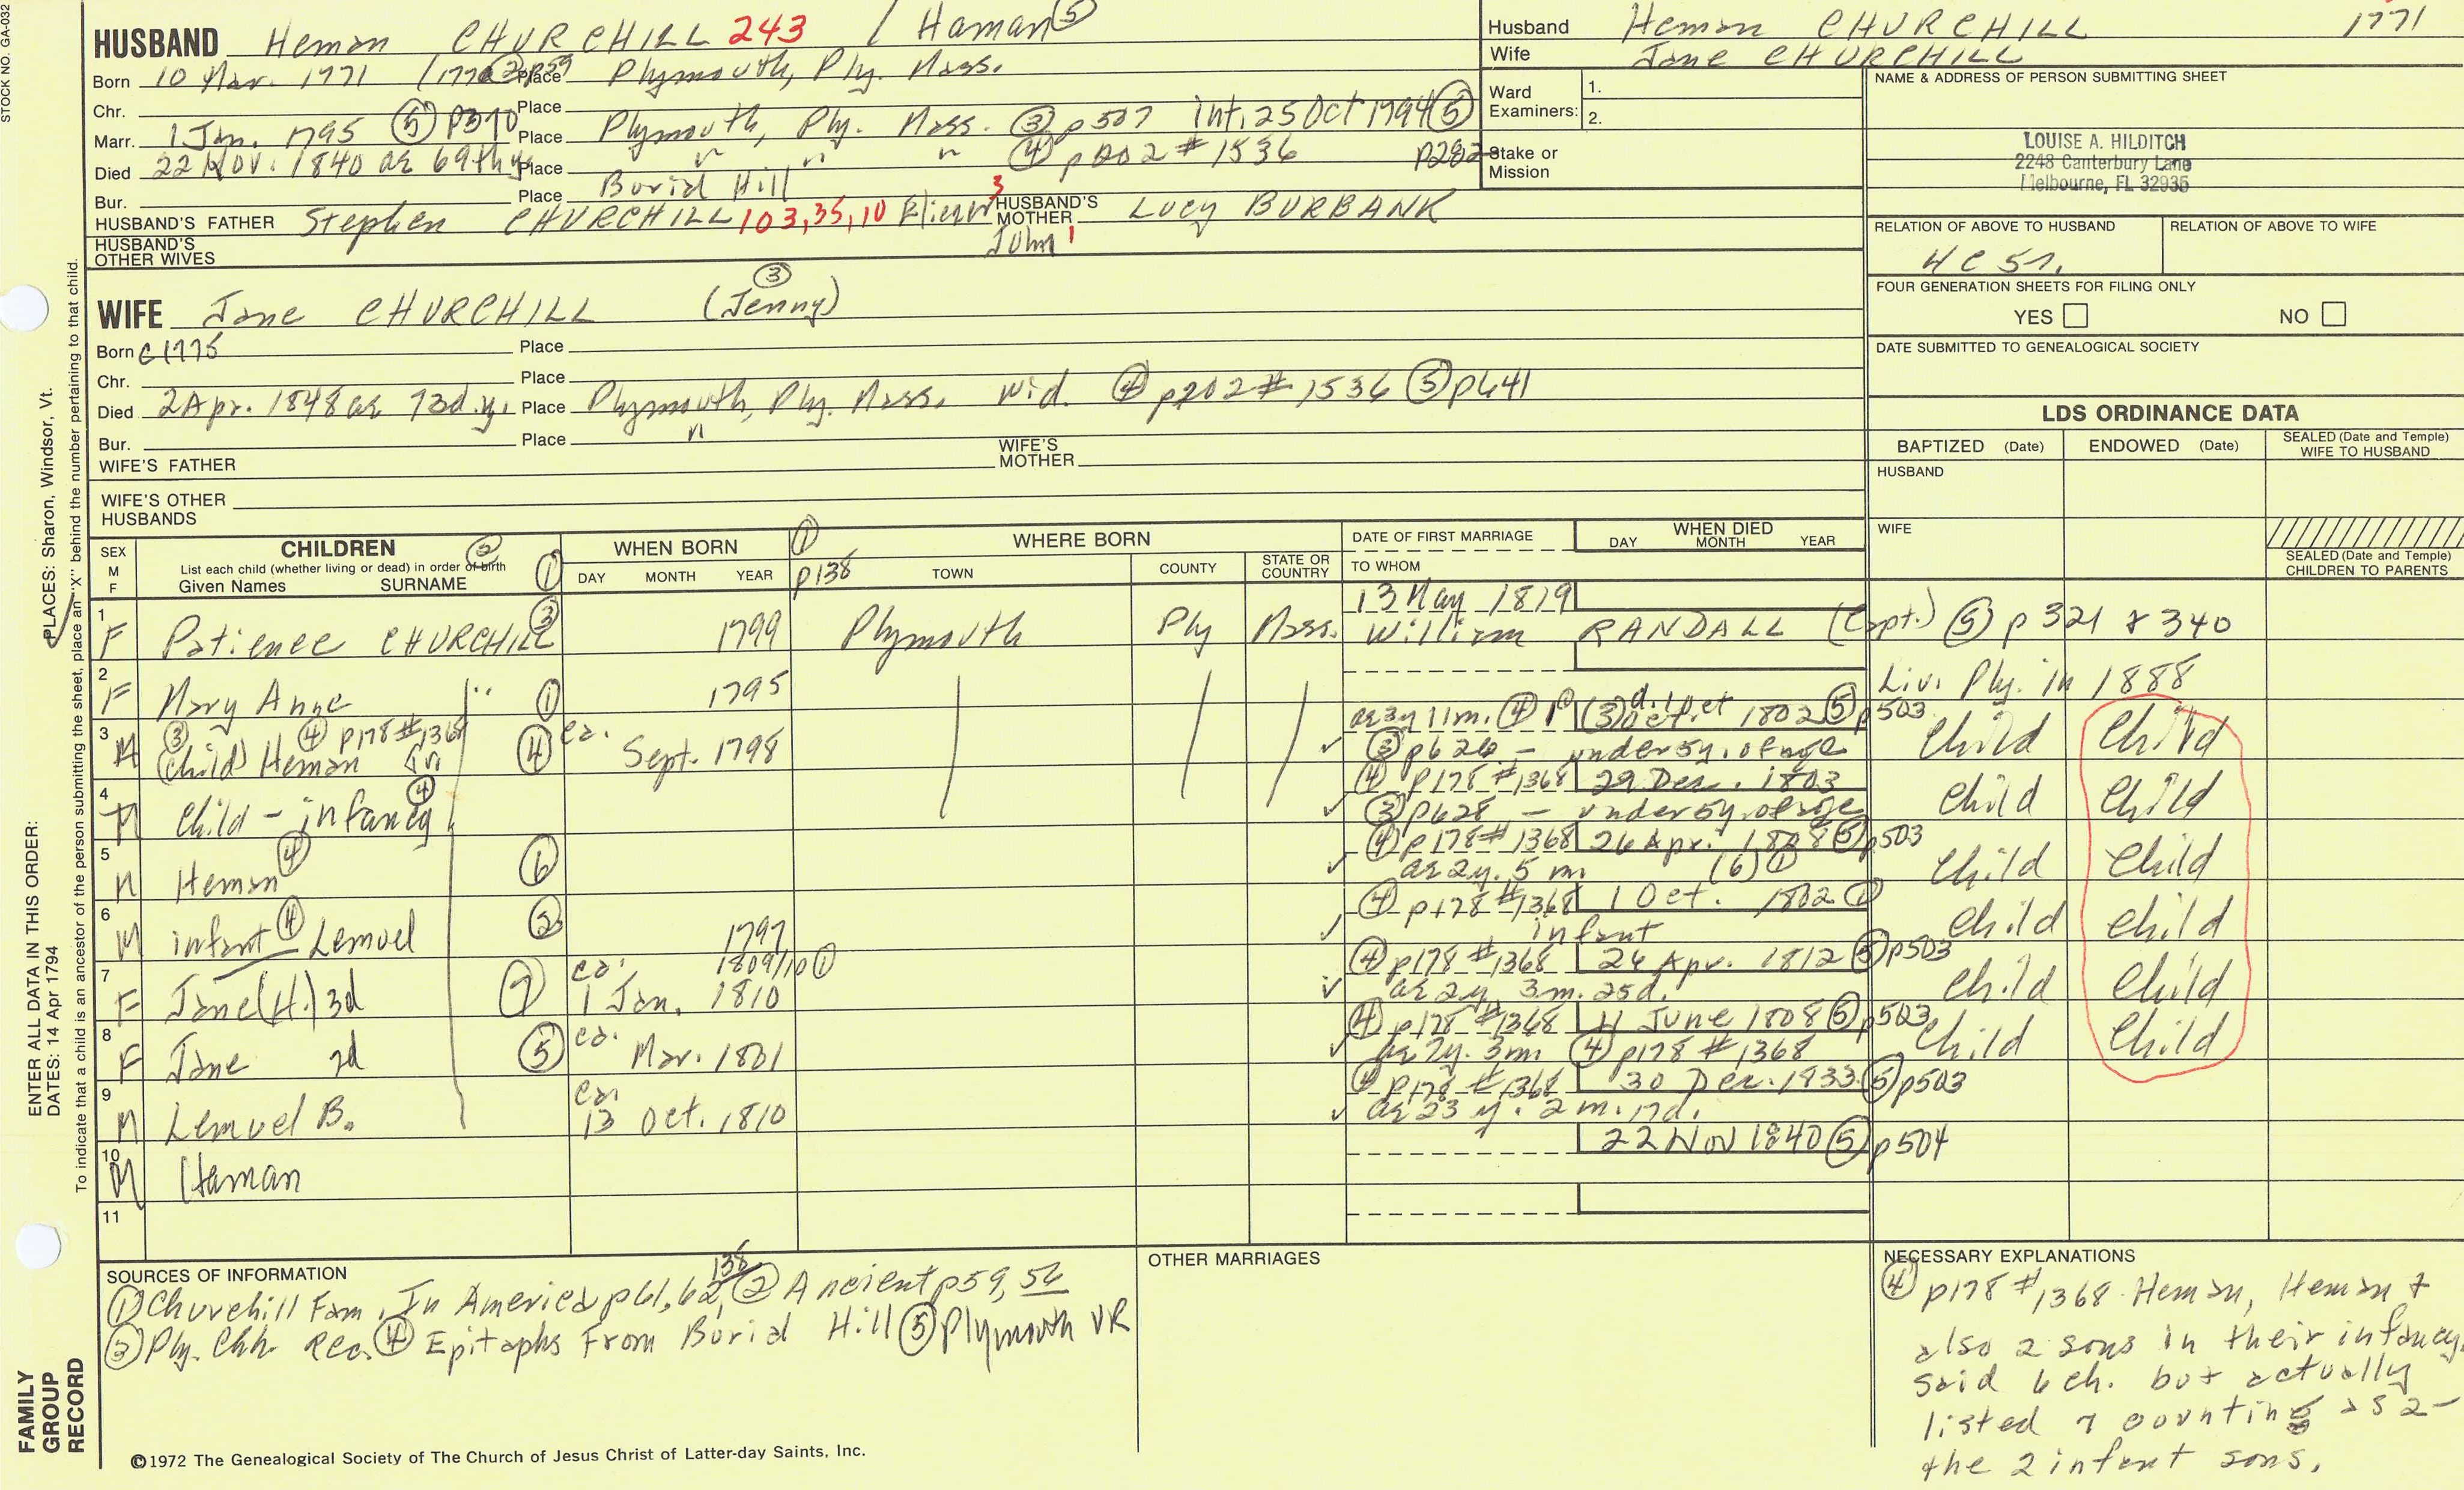 STOCK NO. GA-032
HUSBAND Heman CHURCHILL 243 / Haman ⑤
Born 10 Mar. 1771 Place Plymouth, Ply. Mass.
Chr. Place
Marr. 1 Jan. 1795 ⑤ p310 Place Plymouth, Ply. Mass. ③ p507 int. 25 Oct 1794 ⑤ p282
Died 22 Nov. 1840 ae 69th y Place " " " ④ p202 #1536
Bur. Place Burial Hill
HUSBAND'S FATHER Stephen CHURCHILL 103, 35, 10 3 HUSBAND'S MOTHER Lucy BURBANK
HUSBAND'S OTHER WIVES John 1
Husband Heman CHURCHILL 1771
Wife Jane CHURCHILL
Ward Examiners: 1.
2.
Stake or Mission
NAME & ADDRESS OF PERSON SUBMITTING SHEET
LOUISE A. HILDITCH
2248 Canterbury Lane
Melbourne, FL 32935
RELATION OF ABOVE TO HUSBAND RELATION OF ABOVE TO WIFE
4C5r.
FOUR GENERATION SHEETS FOR FILING ONLY
YES NO
DATE SUBMITTED TO GENEALOGICAL SOCIETY
WIFE Jane CHURCHILL (Jenny) ③
Born c1775 Place
Chr. Place
Died 2 Apr. 1848 ae 73d.y. Place Plymouth, Ply. Mass. Wid. ④ p202 #1536 ⑤ p641
Bur. Place "
WIFE'S FATHER WIFE'S MOTHER
WIFE'S OTHER HUSBANDS
LDS ORDINANCE DATA
BAPTIZED (Date) ENDOWED (Date) SEALED (Date and Temple) WIFE TO HUSBAND
HUSBAND
WIFE
SEALED (Date and Temple) CHILDREN TO PARENTS
SEX M F CHILDREN ② List each child (whether living or dead) in order of birth Given Names SURNAME ① WHEN BORN DAY MONTH YEAR ① p138 WHERE BORN TOWN COUNTY STATE OR COUNTRY DATE OF FIRST MARRIAGE TO WHOM WHEN DIED DAY MONTH YEAR
1 F Patience CHURCHILL ③ 1799 Plymouth Ply Mass. 13 May 1819 William RANDALL (Capt.) ⑤ p 321 & 340
2 F Mary Anne " ① 1795 Liv. Ply. in 1888
3 M ③ (Child) Heman ④ p178 #1368 ④ ca. Sept. 1798 ae 3y 11m. ④ d. 1 Oct 1802 ⑤ p503 ③ p626 - under 5y. of age Child Child
4 M Child - infancy ④ ④ p178 #1368 29 Dec. 1803 ③ p628 - under 5y. of age Child Child
5 M Heman ④ ⑥ ④ p178 #1368 26 Apr. 1808 ⑤ p503 ae 2y. 5 m. (6) ① Child Child
6 M infant ④ Lemuel ② 1797 ④ p178 #1368 1 Oct. 1802 ① infant Child Child
7 F Jane (H.) 3d ⑦ ca. 1809/10 ① 1 Jan. 1810 ④ p178 #1368 26 Apr. 1812 ⑤ p503 ae 2y. 3m. 25d. Child Child
8 F Jane 2d ⑤ ca. Mar. 1801 ④ p178 #1368 11 June 1808 ⑤ p503 ae 7y. 3m ④ p178 #1368 Child Child
9 M Lemuel B. ca. 13 Oct. 1810 ④ p178 #1368 30 Dec. 1833 ⑤ p503 ae 23 y. 2 m. 17d.
10 M Haman 22 Nov 1840 ⑤ p504
11
SOURCES OF INFORMATION
① Churchill Fam. In America p61, 62, 138 ② Ancient p59, 56
③ Ply. Chh Rec. ④ Epitaphs From Burial Hill ⑤ Plymouth VR
OTHER MARRIAGES
NECESSARY EXPLANATIONS
④ p178 #1368 Heman, Heman &
also 2 sons in their infancy.
Said 6 ch. but actually
listed 7 counting as 2 -
the 2 infant sons.
©1972 The Genealogical Society of The Church of Jesus Christ of Latter-day Saints, Inc.
FAMILY GROUP RECORD
ENTER ALL DATA IN THIS ORDER:
DATES: 14 Apr 1794
PLACES: Sharon, Windsor, Vt.
To indicate that a child is an ancestor of the person submitting the sheet, place an "X" behind the number pertaining to that child.